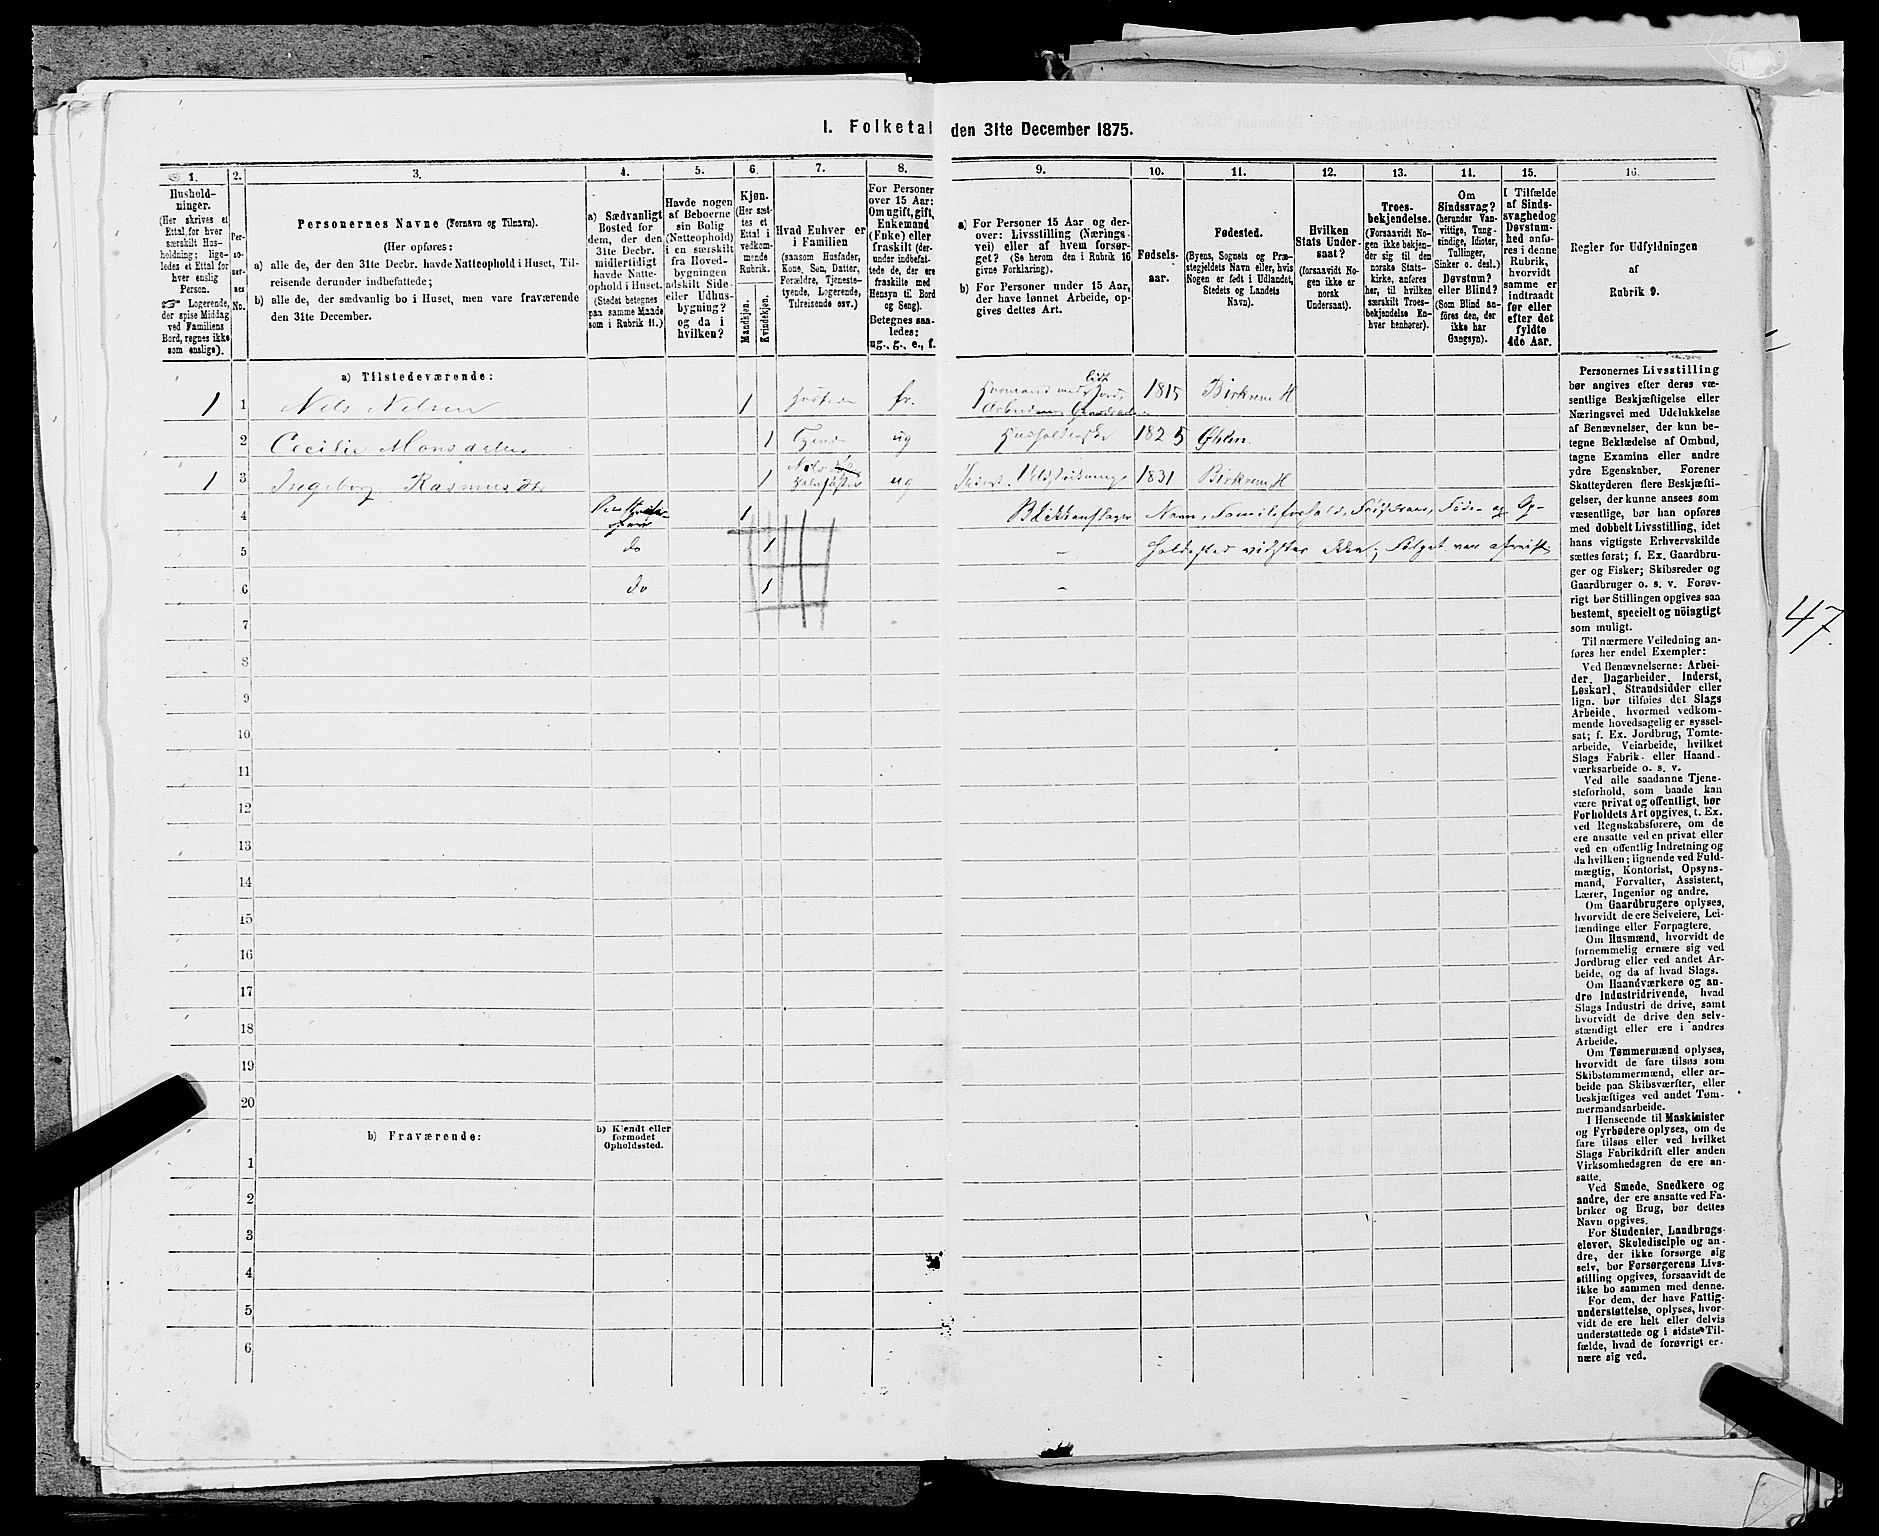 I. Folketal den 31te December 1875.
1.
2.
3.
4.
5.
6.
7.
8.
9.
10.
11.
12.
13.
14.
15.
16.
Hushold-
ninger.
(Her skrives et
Ettal for hver
særskilt Hus-
holdning; lige-
ledes et Ettal for
hver enslig
Person.
☞ Logerende,
der spise Middag
ved Familiens
Bord, regnes ikke
som enslige).
Per-
so-
ner-
nes
No.
Personernes Navne (Fornavn og Tilnavn).
(Her opføres:
a) alle de, der den 31te Decbr. havde Natteophold i Huset, Til-
reisende derunder indbefattede;
b) alle de, der sædvanlig bo i Huset, men vare fraværende
den 31te December.
a) Sædvanligt
Bosted for
dem, der den
31te Decbr.
midlertidigt
havde Natte-
ophold i Huset.
(Stedet betegnes
paa samme Maade
som i Rubrik 11.)
Havde nogen
af Beboerne
sin Bolig
(Natteophold)
i en særskilt
fra Hoved-
bygningen
adskilt Side-
eller Udhus-
bygning?
og da i
hvilken?
Kjøn.
(Her sæt-
tes et
Ettal i
vedkom-
mende
Rubrik.
Mandkjøn.
Kvindekjøn.
Hvad Enhver er
i Familien
(saasom Husfader,
Kone, Søn, Datter,
Forældre, Tjeneste-
tyende, Logerende,
Tilreisende osv.)
For Personer
over 15 Aar:
Om ugift, gift,
Enkemand
(Enke) eller
fraskilt (der-
under indbefat-
tede de, der ere
fraskilte med
Hensyn til Bord
og Seng).
Betegnes saa-
ledes:
ug., g., e., f.
a) For Personer 15 Aar og der-
over: Livsstilling (Nærings-
vei) eller af hvem forsør-
get? (Se herom den i Rubrik 16
givne Forklaring).
b) For Personer under 15 Aar,
der have lønnet Arbeide, op-
gives dettes Art.
Fødsels-
aar.
Fødested.
(Byens, Sognets og Præ-
stegjeldets Navn eller, hvis
Nogen er født i Udlandet,
Stedets og Landets
Navn).
Hvilken
Stats Under-
saat?
(forsaavidt No-
gen ikke er
norsk
Undersaat).
Troes-
bekjendelse.
(Forsaavidt No-
gen ikke bekjen-
der sig til den
norske Stats-
kirke, anføres
her, til hvilken
særskilt Troes-
bekjendelse En-
hver henhører).
Om
Sindssvag?
(herunder Van-
vittige, Tung-
sindige, Idioter,
Tullinger,
Sinker o. desl.)
Døvstum?
eller Blind?
(Som Blind an-
føres den, der
ikke har
Gangsyn).
I Tilfælde
af Sinds-
svaghed og
Døvstum-
hed anfø-
res i denne
Rubrik,
hvorvidt
samme er
indtraadt
før eller
efter det
fyldte
4de Aar.
Regler for Udfyldningen
af
Rubrik 9.
a) Tilstedeværende:
1 1 Nils Nilsen 1 Husfader 1815 Birkrem H
Husmand med lidt Jord,
2 Cecilie Monsdatter 1 Tyende ug 1825
1 3 Ingeborg Rasmusdtr 1 ug 1831 Birkrem H
4 1 Blikkenslager Navn, Familieforhold, Føde- og Op-
5 do 1 – holdssted vidstes ikke; Følget var afreist
6 do 1 –
7
8
9
10
11
12
13
14
15
16
17
18
19
20
b) Fraværende:
b) Kjendt eller
formodet
Opholdssted.
1
2
3
4
5
6
Personernes Livsstilling
bør angives efter deres væ-
sentlige Beskjæftigelse eller
Næringsvei med Udelukkelse
af Benævnelser, der kun be-
tegne Beklædelse af Ombud,
tagne Examina eller andre
ydre Egenskaber. Forener
Skatteyderen flere Beskjæfti-
gelser, der kunne ansees som
væsentlige, bør han opføres
med dobbelt Livsstilling, idet
hans vigtigste Erhvervskilde
sættes først; f. Ex. Gaardbru-
ger og Fisker; Skibsreder og
Gaardbruger o. s. v. Forøv-
rigt bør Stillingen opgives saa
bestemt, specielt og nöiagtigt
som muligt.
Til nærmere Veiledning an-
føres her endel Exempler:
Ved Benævnelserne: Arbei-
der, Dagarbeider, Inderst,
Løskarl, Strandsidder eller
lign. bør tilføies det Slags
Arbeide, hvormed vedkom-
mende hovedsagelig er syssel-
sat; f. Ex. Jordbrug, Tomte-
arbeide, Veiarbeide, hvilket
Slags Fabrik- eller Haand-
værksarbeide o. s. v.
Ved alle saadanne Tjene-
steforhold, som baade kan
være privat og offentligt, bør
Forholdets Art opgives, t. Ex.
ved Regnskabsførere, om de
ere ansatte ved en privat eller
ved en offentlig Indretning og
da hvilken; lignende ved Fuld-
mægtig, Kontorist, Opsyns-
mand, Forvalter, Assistent,
Lærer, Ingeniør og andre.
Om Gaardbrugere oplyses,
hvorvidt de ere Selveiere, Lei-
lændinge eller Forpagtere.
Om Husmænd, hvorvidt de
fornemmelig ernære sig ved
Jordbrug eller ved andet Ar-
beide, og da af hvad Slags.
Om Haandværkere og an-
dre Industridrivende, hvad
Slags Industri de drive, samt
hvorvidt de drive den selv-
stændigt eller ere i andres
Arbeide.
Om Tømmermænd oplyses,
hvorvidt de fare tilsøs som
Skibstømmermænd, eller ar-
beide paa Skibsværfter, eller
beskjæftiges ved andet Tøm-
mermandsarbeide.
I Henseende til Maskinister
og Fyrbødere oplyses, om de
fare tilsøs eller ved hvilket
Slags Fabrikdrift eller anden
Virksomhedsgren de ere an-
satte.
Ved Smede, Snedkere og
andre, der ere ansatte ved Fa-
briker og Brug, bør dettes
Navn opgives.
For Studenter, Landbrugs-
elever, Skoledisciple og an-
dre, der ikke forsørge sig
selv, bør Forsørgerens Livs-
stilling opgives, forsaavidt de
ikke bo sammen med denne.
For dem, der have Fattig-
understøttelse, oplyses, hvor-
vidt de ere helt eller delvis
understøttede og i sidste Til-
fælde, hvad de forøvrigt er-
nære sig ved.
47